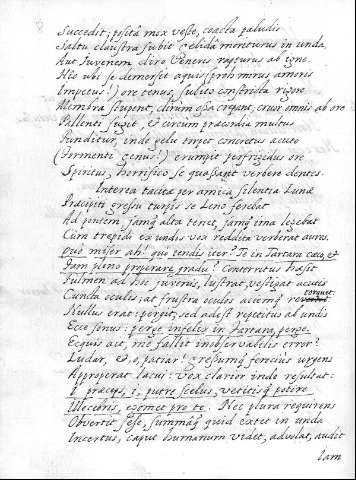 Succedit; positâ mox veste, coacta paludis
Saltu claustra subit gelidâ moriturus in unda,
Aut Juvenem diro Veneris rapturus ab igne.
Hic ubi se demersit aquis (proh mirus amoris
Impetus!) ore tenus, subito constricta rigore
Membra stupent, dirum ossa rigent, cruor omnis ab ore
Pallenti fugit, et circum præcordia multus
Funditur, inde gelu torpet concretus acuto
(Tormenti genus!) erumpit perfrigidus ore
Spiritus, horrifico se quassant verbere dentes.
Interea tacitæ per amica silentia Lunæ
Præcipiti gressu turpis se Leno ferebat
Ad pontem, jamq; alta tenet, jamq; ima legebat
Cum trepidi ex undis vox reddita verberat aures.
Quò miser ah! quò tendis iter? Te in Tartara cæco, et
Jam pleno properare gradu? Conterritus hæsit
Fulmen ad hoc juvenis, lustrat, vestigat acutis
Cuncta oculis; at frustra oculos aciemq; retorquet.
Nullus erat: pergit, sed adest repetitus ab undis
Ecce sonus: perge infelix in Tartara, perge.
Ecquis ait, mè fallit inobservabilis error?
Ludar, et, o, patiar? gressumq; ferocius urgens
Approperat lacui: vox clarior inde resultat:
I præceps, i, putre scelus, vetitisq; potire
Illecebris, crucior pro te. Nec plura requirens
Obvertit sese, summâq; quid extet in unda
Incertus, caput humanum videt, advolat, audit
Iam